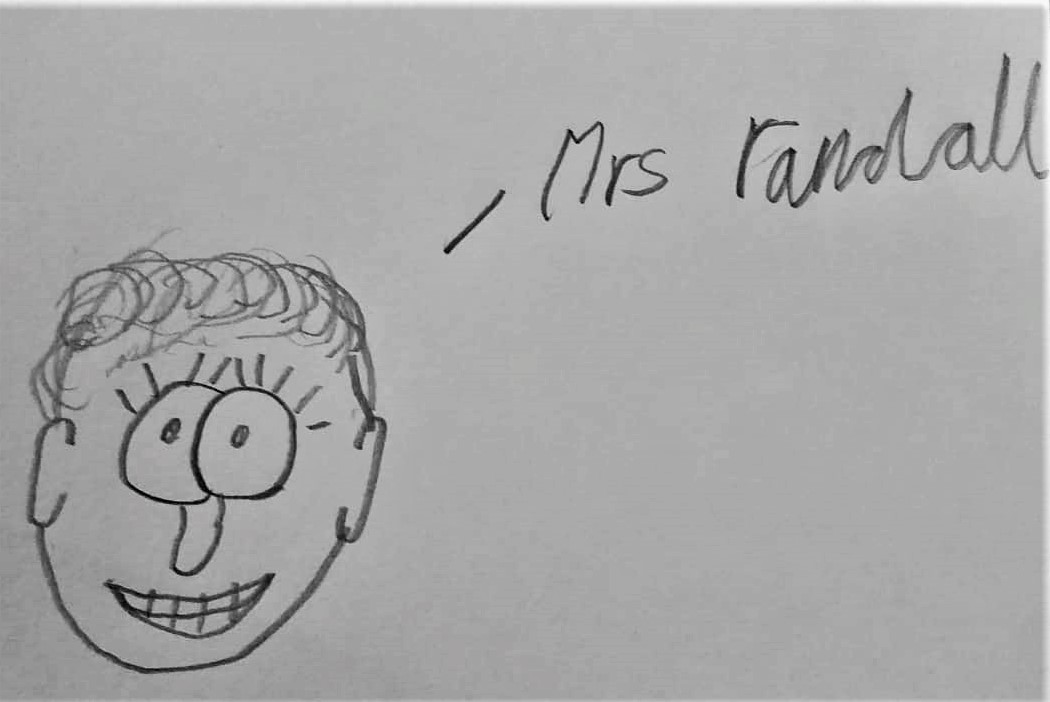 Mrs randall